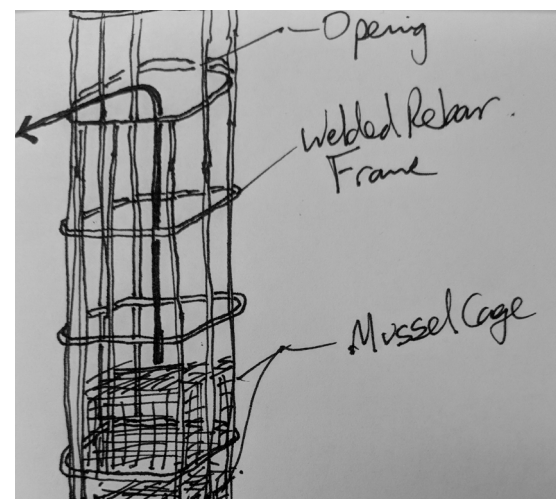 Opening
Welded Rebar.
Frame
Mussel Cage